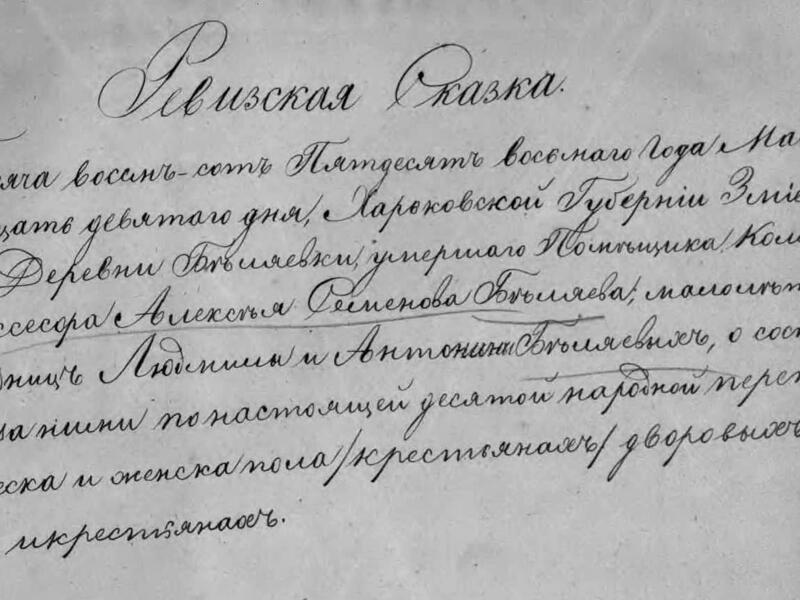 Ревизская Сказка.
яча восемь-сотъ Пятдесятъ восьмаго Года Ма
цать девятаго дня, Харьковской Губерніи Зміе
Деревни Бѣляевки, умершаго Помѣщика Кол
ссесора Алексѣя Семенова Бѣляева, малолѣт
ницъ Людмилы и Антонины Бѣляевыхъ, о сос
ца ними по настоящей десятой народной переп
еска и женска пола /крестьянахъ/ дворовыхъ
и крестьянахъ.